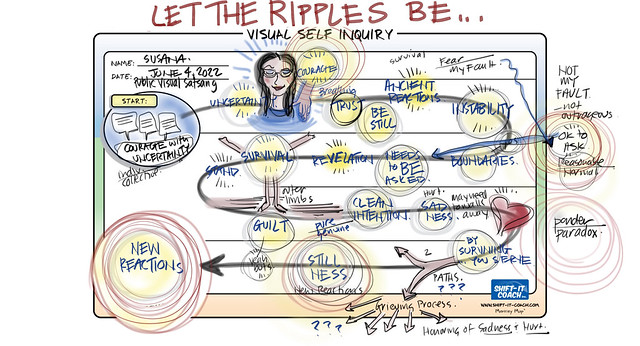 LET THE RIPPLES BE...
VISUAL SELF INQUIRY
NAME: SUSANA
DATE: JUNE 4, 2022
Public Visual Satsang
START:
COURAGE WITH
UNCERTAINTY
individual
collective
UNCERTAIN
COURAGE
Breathing
TRUST
BE
STILL
survival
Fear
my Fault
ANCIENT
REACTIONS
INSTABILITY
NOT
MY
FAULT.
not
outrageous
OK TO
ASK
Reasonable
Normal
BOUNDARIES.
NEEDS
to BE
ASKED.
REVELATION
SURVIVAL
SOUND.
outer
limbs
GUILT
pure
genuine
CLEAN
INTENTION
Hurt.
SAD
NESS.
may need
to walk
away
ponder
paradox.
BY
SURVIVING
YOU SERVE
2
PATHS.
? ? ?
STILL
NESS
New Reactions
NEW
REACTIONS
Grieving Process.
? ? ?
Honoring of Sadness + Hurt.
SHIFT-IT
COACH
WWW.SHIFT-IT-COACH.COM